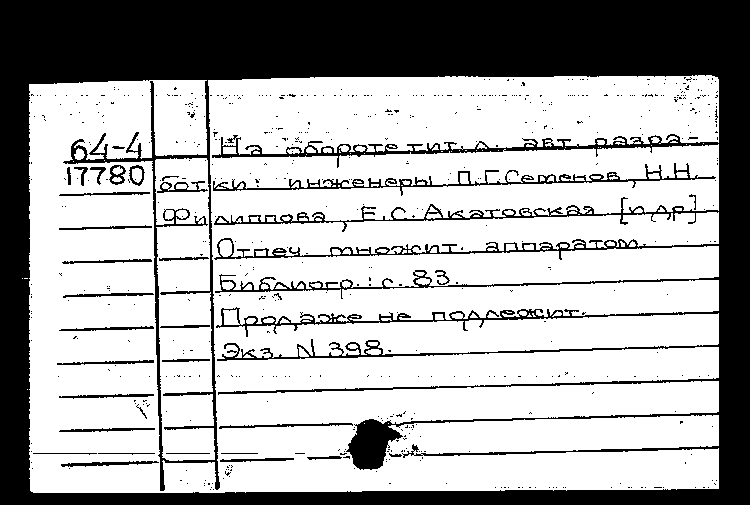 64-4 На обороте тит. л. авт. разра-
17780 ботки: инженеры П.Г.Семенов, Н.Н.
Филиппова, Е.С.Акатовская [и др]
Отпеч. множит. аппаратом.
Библиогр.: с. 83.
Продаже не подлежит.
Экз. N 398.